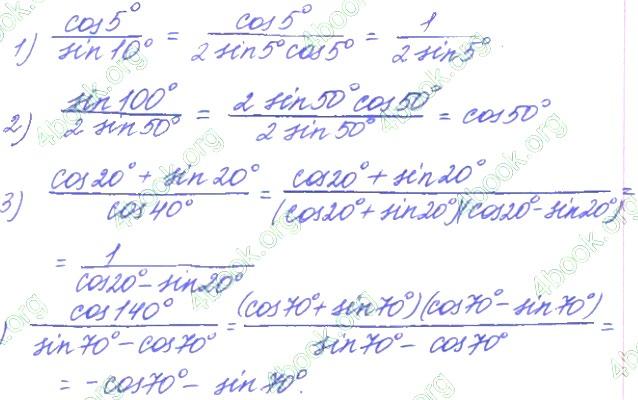 1) cos5°/sin10° = cos5°/(2 sin5° cos5°) = 1/(2 sin5°)
2) sin100°/(2 sin50°) = 2 sin50° cos50°/(2 sin50°) = cos50°
3) (cos20° + sin20°)/cos40° = (cos20° + sin20°)/((cos20° + sin20°)(cos20° - sin20°)) =
= 1/(cos20° - sin20°)
) cos140°/(sin70° - cos70°) = (cos70° + sin70°)(cos70° - sin70°)/(sin70° - cos70°) =
= -cos70° - sin70°.
4book.org